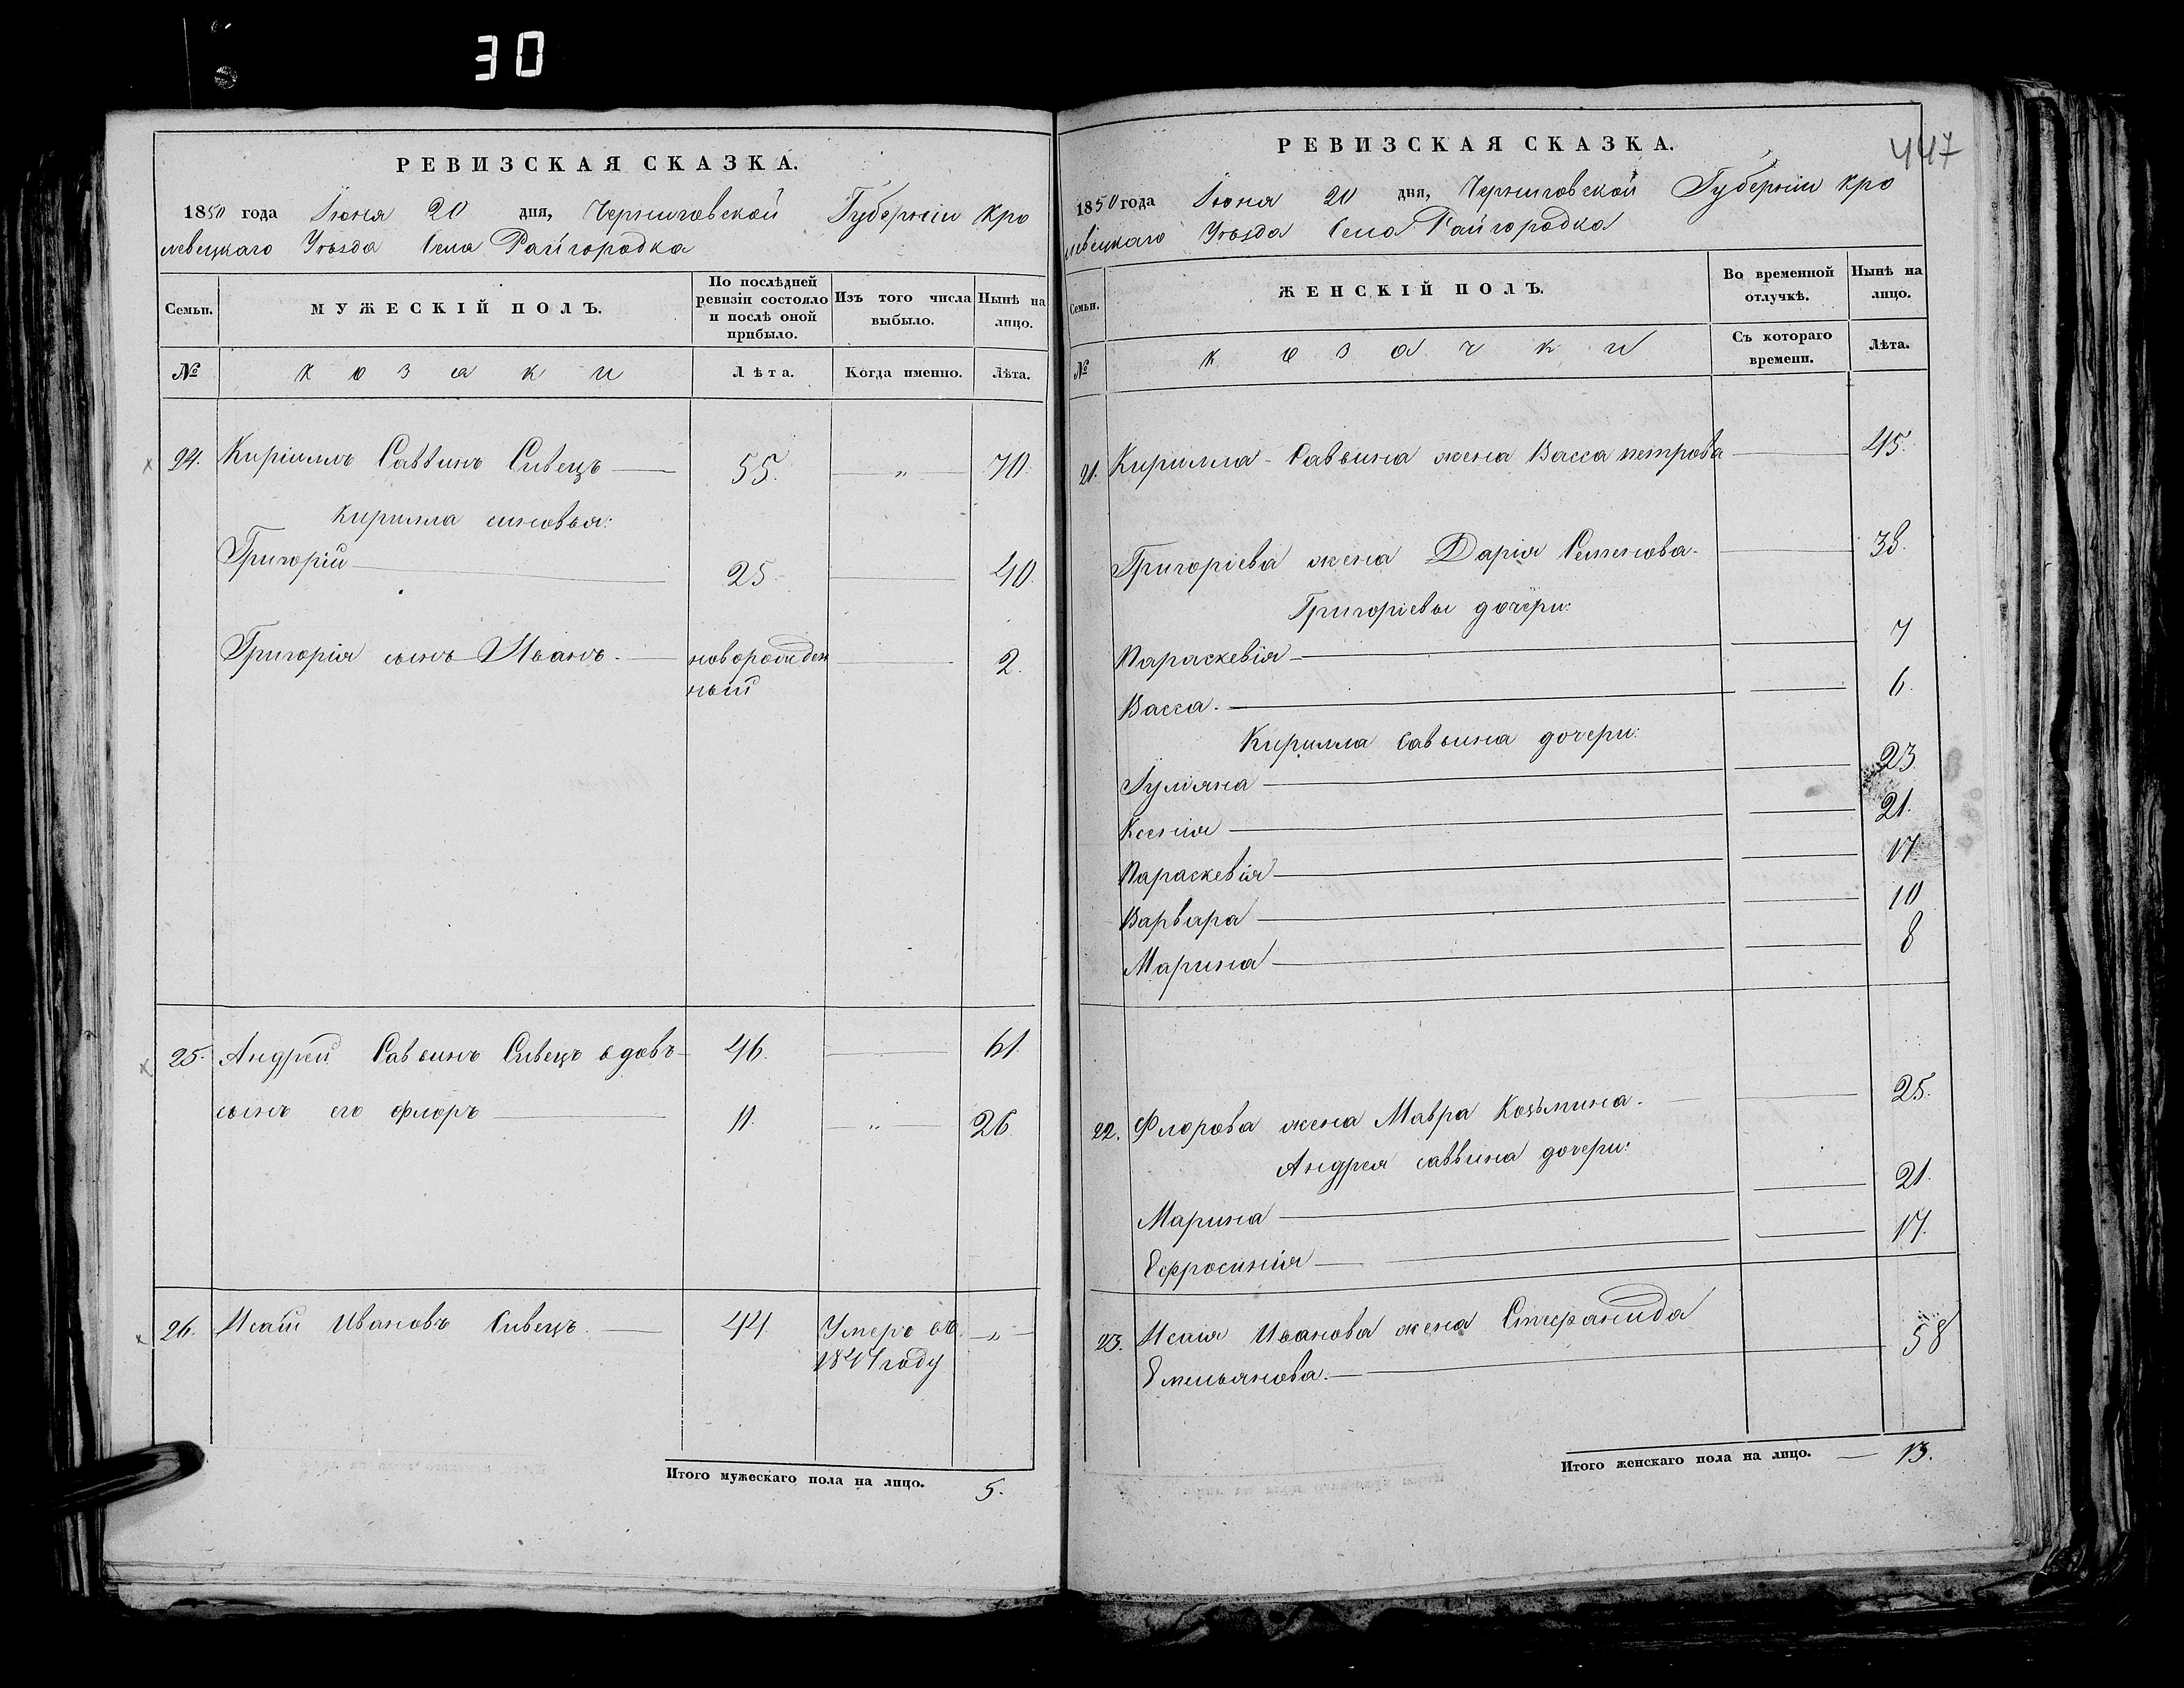 30
РЕВИЗСКАЯ СКАЗКА.
1850 года Іюня 20 дня, Черниговской Губерніи Кро
левецкаго Уѣзда Села Райгородка
Семьи.
МУЖЕСКІЙ ПОЛЪ.
По послѣдней ревизіи состояло и послѣ оной прибыло.
Изъ того числа выбыло.
Нынѣ на лицо.
№
козаки
Лѣта.
Когда именно.
Лѣта.
24. Кириллъ Саввинъ Сивецъ 55. „ 70.
Кирилла сыновья:
Григорій 25. 40.
Григорія сынъ Иванъ. новорожден 2.
ный
25. Андрей Саввинъ Сивецъ вдовъ 46. 61.
сынъ его Флоръ 11. „ 26
26. Исай Ивановъ Сивецъ. 44 Умеръ въ „
1847 году
Итого мужескаго пола на лицо. 5.
447
РЕВИЗСКАЯ СКАЗКА.
1850 года Іюня 20 дня, Черниговской Губерніи Кро
левецкаго Уѣзда Села Райгородка
Семьи.
ЖЕНСКІЙ ПОЛЪ.
Во временной отлучкѣ.
Нынѣ на лицо.
№
козачки
Съ котораго времени.
Лѣта.
21. Кирилла Саввина жена Васса петрова 45.
Григоріева жена Дарія Семенова 38.
Григоріевы дочери:
Параскевія 7
Васса. 6.
Кирилла Саввина дочери:
Іуліяна 23.
Ксенія 21.
Параскевія 17
Варвара 10
Марина 8
22. Флорова жена Мавра Козьмина. 25.
Андрея саввина дочери:
Марина 21.
Ефросинія 17.
23. Исаія Иванова жена Стефанида
Емельянова. 58
Итого женскаго пола на лицо. 13.